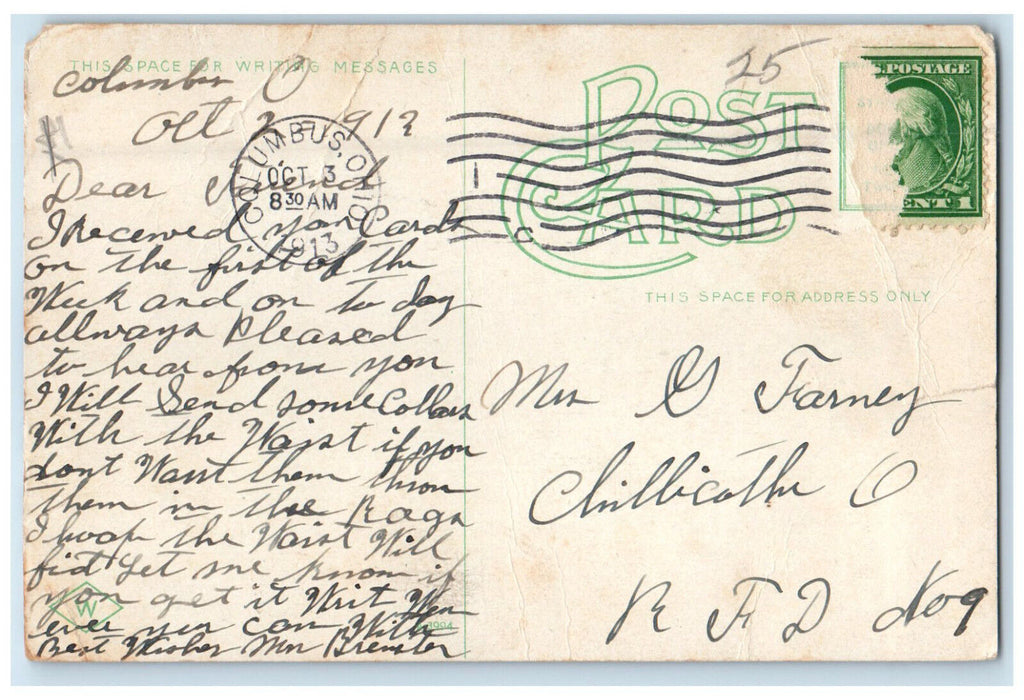 THIS SPACE FOR WRITING MESSAGES
Columbus O
Oct 2 1913
Dear Friend
I Received your Cards
on the first of the
Week and on to day
allways Pleased
to hear from you
I Will Send some Collars
With the Waist if you
dont Want them throw
them in the Rags
I hoap the Waist Will
fit Let me know if
you get it Writ Wen
ever you can With
Best Wishes Mrs Brenster
W
3994
COLUMBUS, OHIO
OCT 3
8 30 AM
1913
1
C
25
POST
CARD
THIS SPACE FOR ADDRESS ONLY
S. POSTAGE
CENTS 1
Mrs G Farney
Chillicothe O
R F D No 9